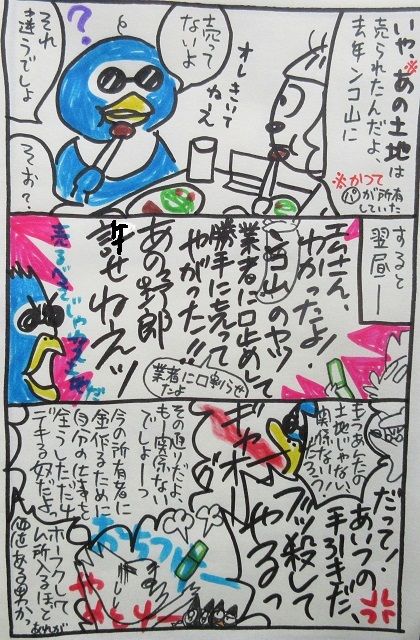 いや※あの土地は
売られたんだよ、
去年ンコ山に
※かつて
パが所有
していた
オレきいて
ねえ
売って
ないよ
?
それ
違うでしょ
そお?
すると
翌昼ー
エさん、
わかったよ!
ンコ山のヤツ
業者に口止めして
勝手に売って
やがった!!
あの野郎
許せねエッ
業者に口割らせ
たよ
もうあんたの
土地じゃない、
関係ない
だろっ!
だって!
あいつの
手引きだ、
ブッ殺して
やるっ
ギャオー
その通りだよ、
もー関係ない
でしょーっ
おちつけー
今の所有者に
金作るために
自分の仕事を
全うしただけ
デキる奴だよ。